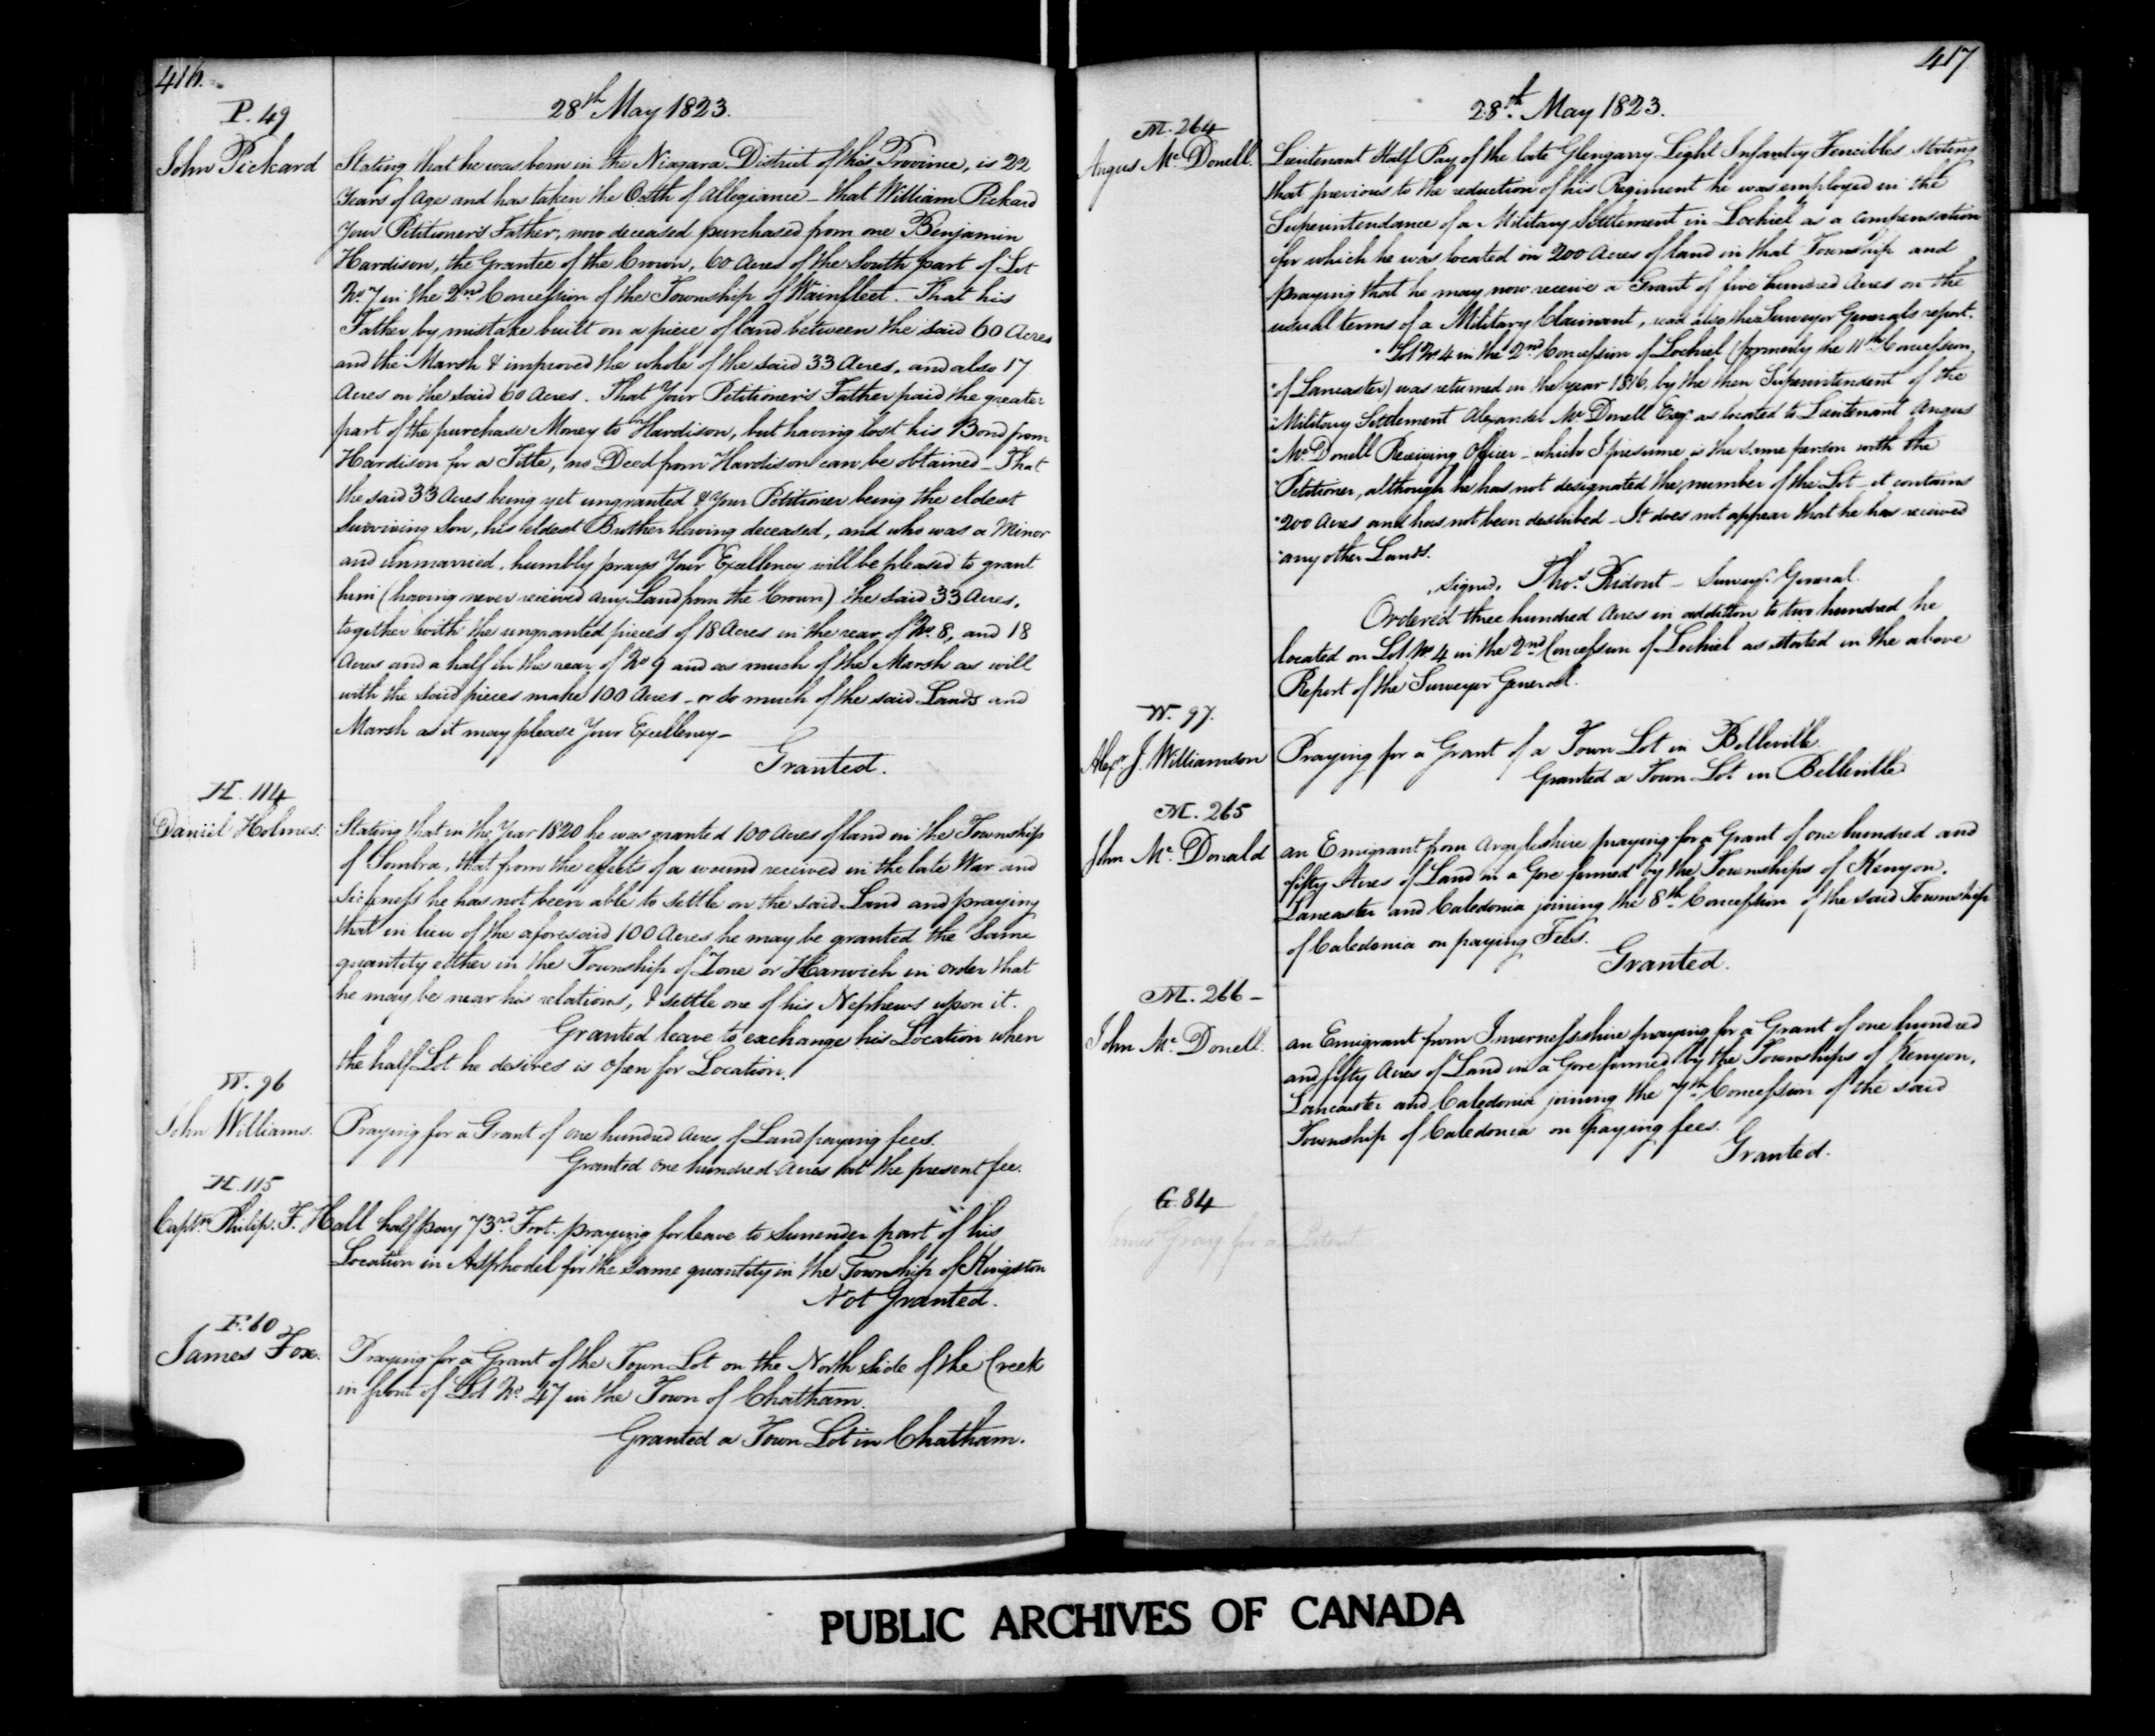 416.
28th May 1823.
P. 49
John Pickard
Stating that he was born in the Niagara District of this Province, is 22
Years of Age and has taken the Oath of Allegiance – that William Pickard
Your Petitioner's Father, now deceased purchased from one Benjamin
Hardison, the Grantee of the Crown, 60 Acres of the South part of Lot
No. 7 in the 2nd Concession of the Township of Wainfleet. That his
Father by mistake built on a piece of land between the said 60 Acres
and the Marsh & improved the whole of the said 33 Acres, and also 17
Acres on the said 60 Acres. That Your Petitioner's Father paid the greater
part of the purchase Money to Hardison, but having lost his Bond from
Hardison for a Title, no Deed from Hardison can be obtained – That
the said 33 Acres being yet ungranted & Your Petitioner being the eldest
surviving Son, his eldest Brother having deceased, and who was a Minor
and Unmarried, humbly prays Your Excellency will be pleased to grant
him (having never received any Land from the Crown) the said 33 Acres,
together with the ungranted pieces of 18 Acres in the rear of No. 8, and 18
Acres and a half in the rear of No 9 and as much of the Marsh as will
with the said pieces make 100 Acres – or so much of the said Lands and
Marsh as it may please Your Excellency –
Granted.
H. 114
Daniel Holmes.
Stating that in the Year 1820 he was granted 100 Acres of land in the Township
of Sombra, that from the effects of a wound received in the late War and
Sickness he has not been able to settle on the said Land and praying
that in lieu of the aforesaid 100 Acres he may be granted the Same
quantity either in the Township of Zone or Harwich in order that
he may be near his relations, & settle one of his Nephews upon it.
Granted leave to exchange his Location when
the half Lot he desires is open for Location.
W. 96
John Williams.
Praying for a Grant of one hundred Acres of Land paying fees.
Granted one hundred Acres at the present fee.
H. 115
Captn. Philip. F. Hall half pay 73rd Foot. praying for leave to Surrender part of his
Location in Asphodel for the same quantity in the Township of Kingston
Not Granted.
F. 60
James Fox.
Praying for a Grant of the Town Lot on the North side of the Creek
in front of Lot No. 47 in the Town of Chatham.
Granted a Town Lot in Chatham.
417
28th. May 1823.
M. 264
Angus McDonell.
Lieutenant Half Pay of the late Glengarry Light Infantry Fencibles Stating
that previous to the reduction of his Regiment he was employed in the
Superintendance of a Military Settlement in Lochiel as a compensation
for which he was located on 200 Acres of land in that Township and
praying that he may now receive a Grant of five hundred Acres on the
usual terms of a Military Claimant, read also the Surveyor Generals report.
"Lot No. 4 in the 2nd Concession of Lochiel (formerly the 11th Concession
"of Lancaster) was returned in the year 1816. by the then Superintendent of the
"Military Settlement Alexander McDonell Esqr. as located to Lieutenant Angus
"McDonell Receiving Officer – which I presume is the same person with the
"Petitioner, although he has not designated the number of the Lot – it contains
"200 Acres and has not been described – It does not appear that he has received
"any other Lands.
signed, Thos. Ridout – Survey. General.
Ordered three hundred Acres in addition to two hundred he
located on Lot No. 4 in the 2nd Concession of Lochiel as stated in the above
Report of the Surveyor General.
W. 97.
Alexr. J. Williamson
Praying for a Grant of a Town Lot in Belleville.
Granted a Town Lot in Belleville
M. 265
John McDonald
an Emigrant from Argyleshire praying for a Grant of one hundred and
fifty Acres of Land in a Gore formed by the Townships of Kenyon,
Lancaster and Caledonia joining the 8th. Concession of the said Township
of Caledonia on paying Fees.
Granted.
M. 266 –
John McDonell.
an Emigrant from Invernessshire praying for a Grant of one hundred
and fifty Acres of Land in a Gore formed by the Townships of Kenyon,
Lancaster and Caledonia joining the 7th Concession of the said
Township of Caledonia on paying fees.
Granted.
G. 84
James Gray for a Patent
PUBLIC ARCHIVES OF CANADA